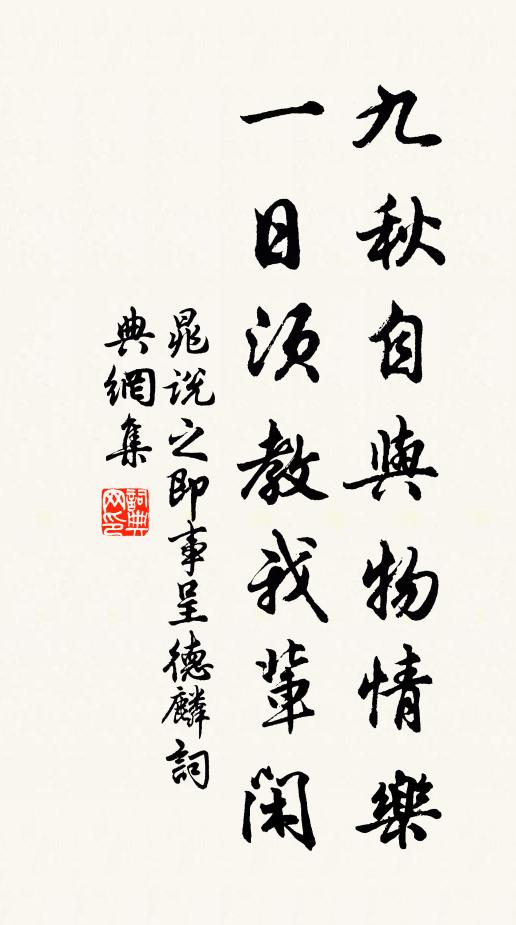 九秋自與物情樂
一日須教我輩閑
晁說之即事呈德麟詞
典網集
詞典網印